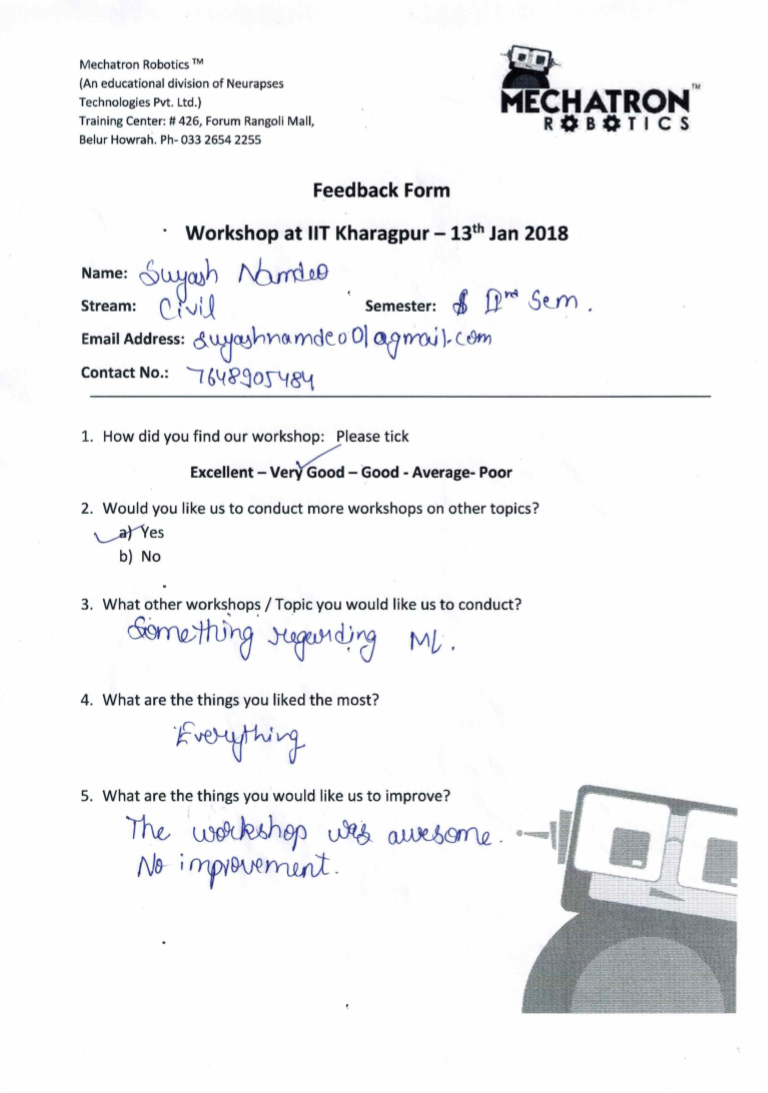 Mechatron Robotics ™
(An educational division of Neurapses
Technologies Pvt. Ltd.)
Training Center: # 426, Forum Rangoli Mall,
Belur Howrah. Ph- 033 2654 2255
MECHATRON™
ROBOTICS
Feedback Form
Workshop at IIT Kharagpur – 13th Jan 2018
Name: Suyash Namdeo
Stream: Civil Semester: IInd Sem.
Email Address: suyashnamdeo01@gmail.com
Contact No.: 7648905484
1. How did you find our workshop: Please tick
Excellent – Very Good – Good - Average- Poor
2. Would you like us to conduct more workshops on other topics?
a) Yes
b) No
3. What other workshops / Topic you would like us to conduct?
Something regarding ML.
4. What are the things you liked the most?
Everything
5. What are the things you would like us to improve?
The workshop was awesome.
No improvement.